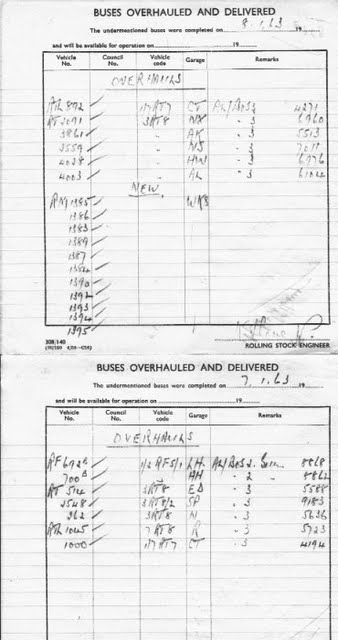 BUSES OVERHAULED AND DELIVERED
The undermentioned buses were completed on 8.1.63 19
and will be available for operation on 19
Vehicle No. Council No. Vehicle code Garage Remarks
OVERHAULS
CT 4271
3RT8 6960
3861 AK - 3 5513
2559 - 3 7011
4028 HW - 3 6976
4003 AL - 3
NEW
RM 1385 WKS
1386
1383
1389
1387
1384
1390
1392
1393
1394
1395
308/140
ROLLING STOCK ENGINEER
BUSES OVERHAULED AND DELIVERED
The undermentioned buses were completed on 7.1.63 19
and will be available for operation on 19
Vehicle No. Council No. Vehicle code Garage Remarks
OVERHAULS
RF 692 1/2 RF5/1 LH. 8868
700 HH - 2 - 8862
RT 514 3RT8 ED - 3 5588
2548 3RT8/2 SP - 3 9183
362 3RT8 N - 3 5636
1045 7RT8 R - 3 5723
1000 CT - 3 4194